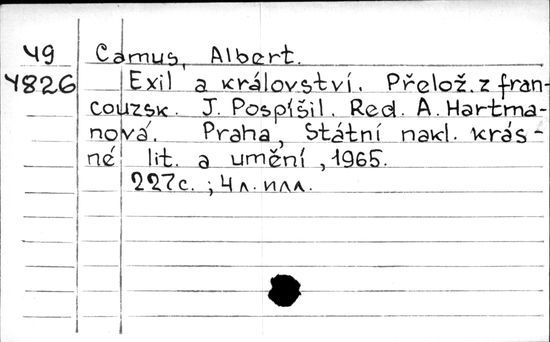 Ч9 Camus, Albert.
Ч826 Exil a království. Přelož. z fran-
couzsk. J. Pospíšil. Red. A. Hartma-
nová. Praha, Státní nakl. krás-
né lit. a umění, 1965.
227с. ; 4 л. илл.